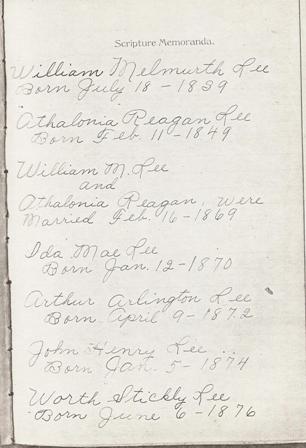 Scripture Memoranda.
William Melmurth Lee
Born July 18-1839
Athalonia Reagan Lee
Born Feb. 11-1849
William M. Lee
and
Athalonia Reagan, were
Married Feb. 16-1869
Ida Mae Lee
Born Jan. 12-1870
Arthur Arlington Lee
Born April 9-1872
John Henry Lee
Born Jan. 5-1874
Worth Stickly Lee
Born June 6-1876